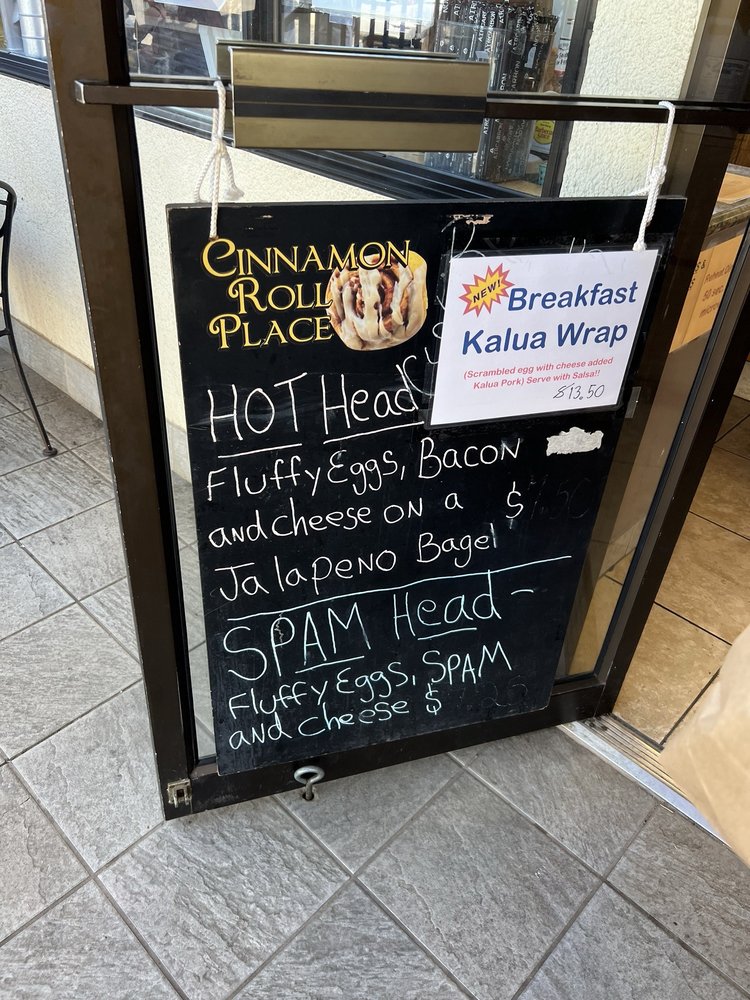 CINNAMON
ROLL
PLACE
NEW!
Breakfast
Kalua Wrap
(Scrambled egg with cheese added
Kalua Pork) Serve with Salsa!!
$13.50
HOT Head
Fluffy Eggs, BACON
and cheese ON a $
Jalapeno Bagel
SPAM Head -
Fluffy Eggs, SPAM
and cheese $